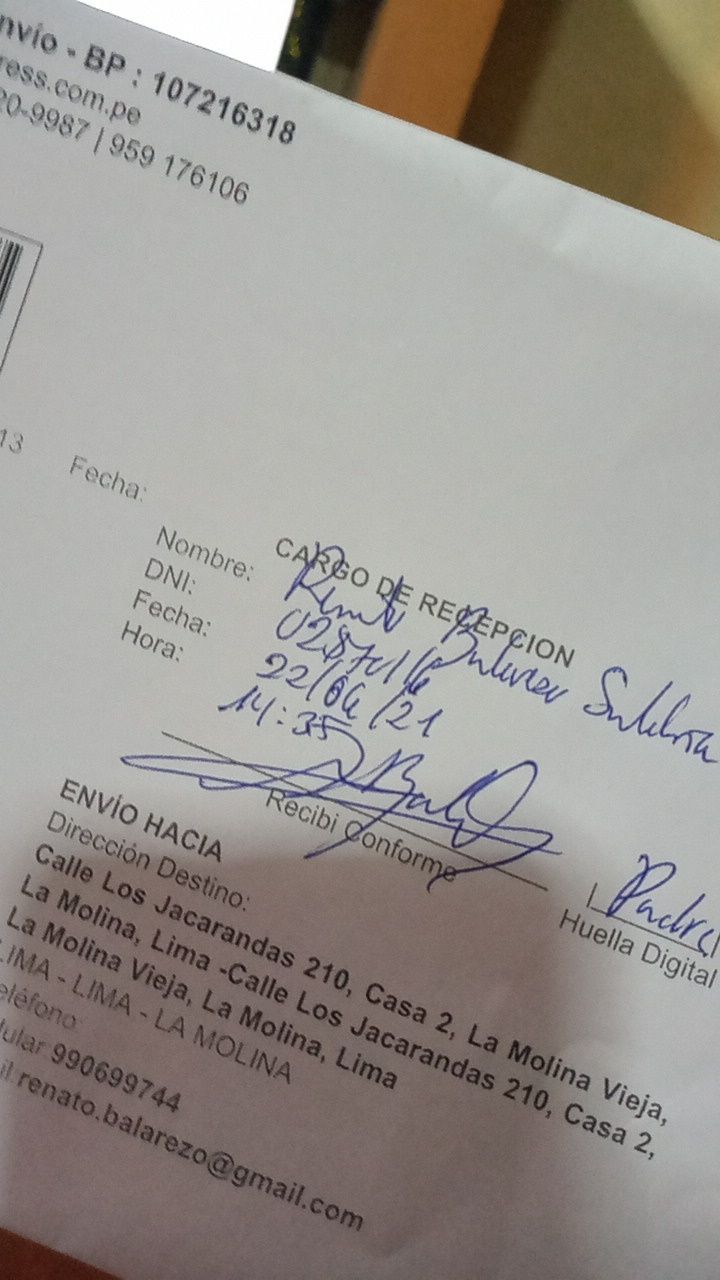 nvío - BP : 107216318
ress.com.pe
20-9987 | 959 176106
13
Fecha:
CARGO DE RECEPCION
Nombre: Renato
DNI:
Fecha: 22/04/21
Hora: 14:35
Recibi Conforme
Padre
Huella Digital
ENVÍO HACIA
Dirección Destino:
Calle Los Jacarandas 210, Casa 2, La Molina Vieja,
La Molina, Lima -Calle Los Jacarandas 210, Casa 2,
La Molina Vieja, La Molina, Lima
LIMA - LIMA - LA MOLINA
eléfono:
lular:990699744
il:renato.balarezo@gmail.com